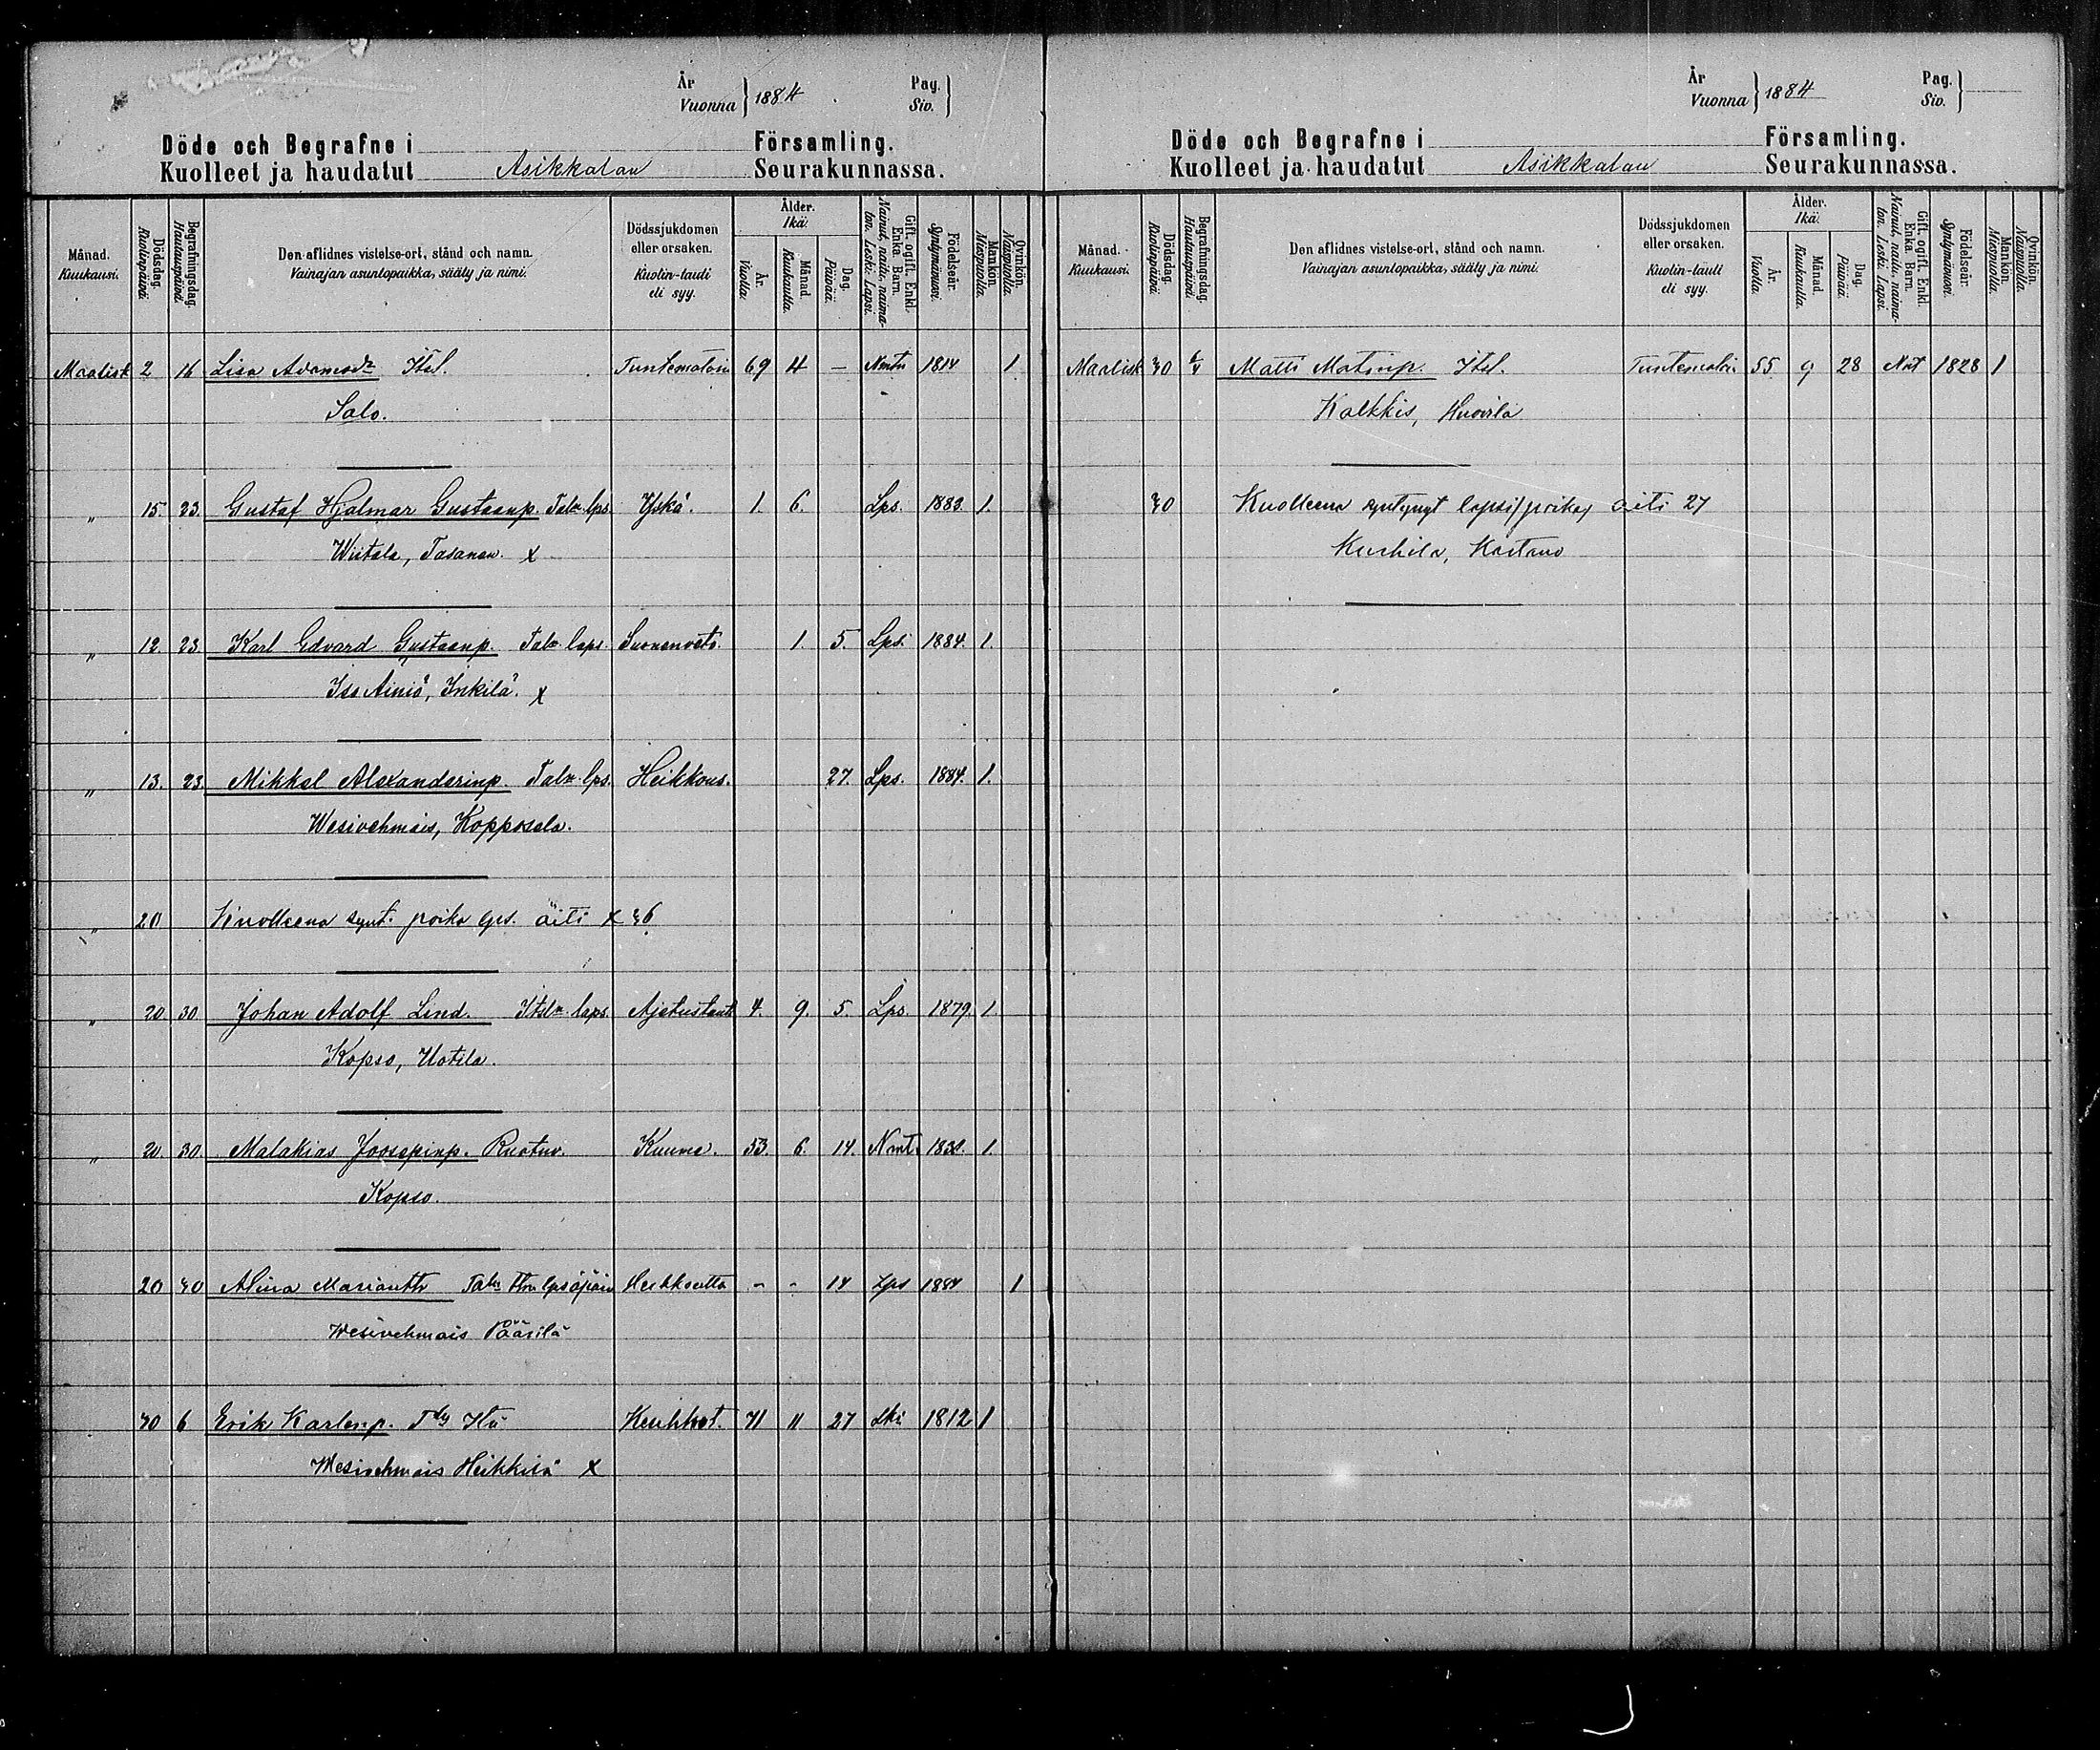 År
Vuonna } 1884
Pag.
Siv. }
Döde och Begrafne i Församling.
Kuolleet ja haudatut Asikkalan Seurakunnassa.
Månad. Kuukausi.
Dödsdag. Kuolinpäivä.
Begrafningsdag. Hautauspäivä.
Den aflidnes vistelse-ort, stånd och namn.
Vainajan asuntopaikka, sääty ja nimi.
Dödssjukdomen eller orsaken.
Kuolin-tauti eli syy.
Ålder. Ikä.
År. Vuotta.
Månad. Kuukautta.
Dag. Päivää.
Gift, ogift, Enkl. Enka. Barn.
Nainut, naitu, naimaton. Leski. Lapsi.
Födelseår. Syntymävuosi.
Mankön. Miespuolia.
Qvinkön. Naispuolia.
Maalisk 2 16 Lisa Adamsdr Itsl. Tuntematoin 69 4 – Nmtn 1814 1
Salo.
„ 15. 23. Gustaf Hjalmar Gustaanp. Taln lps. Yskä. 1. 6. Lps. 1883. 1.
Wiitala, Tasanen. x
„ 12. 23. Karl Edvard Gustaanp. Taln laps. Suonenveto. 1. 5. Lps. 1884. 1.
Iso Äiniö, Inkilä. x
„ 13. 23. Mikkel Alexanderinp. Taln lps. Heikkous. 27. Lps. 1884. 1.
Wesivehmais, Kopposela.
„ 20 Kuolleena synt. poika lps. äiti x 36
„ 20 30 Johan Adolf Lind. Itsln laps. Ajetustauti 4. 9. 5. Lps. 1879. 1.
Kopso, Uotila.
„ 20. 30. Malakias Joosepinp. Ruotuv. Kuume. 53. 6. 14. Nmt. 1830. 1.
Kopso.
20 30 Alina Mariantr Taln Heikkoutta - - 14 Lps 1884 1
Wesivehmais Pääsilä
30 6 Erik Karlenp. 71 11 27 Lki 1812 1
Wesivehmais Heikkilä x
År
Vuonna } 1884
Pag.
Siv. }
Döde och Begrafne i Församling.
Kuolleet ja haudatut Asikkalan Seurakunnassa.
Månad. Kuukausi.
Dödsdag. Kuolinpäivä.
Begrafningsdag. Hautauspäivä.
Den aflidnes vistelse-ort, stånd och namn.
Vainajan asuntopaikka, sääty ja nimi.
Dödssjukdomen eller orsaken.
Kuolin-tauti eli syy.
Ålder. Ikä.
År. Vuotta.
Månad. Kuukautta.
Dag. Päivää.
Gift, ogift, Enkl. Enka. Barn.
Nainut, naitu, naimaton. Leski. Lapsi.
Födelseår. Syntymävuosi.
Mankön. Miespuolia.
Qvinkön. Naispuolia.
Maalisk 30 Matti Matinp. Itsl. Tuntematoin 55 9 28 Nat 1828 1
Kalkkis, Huovila
30 Kuolleena syntynyt lapsi (poika) äiti 27
Kurhila,